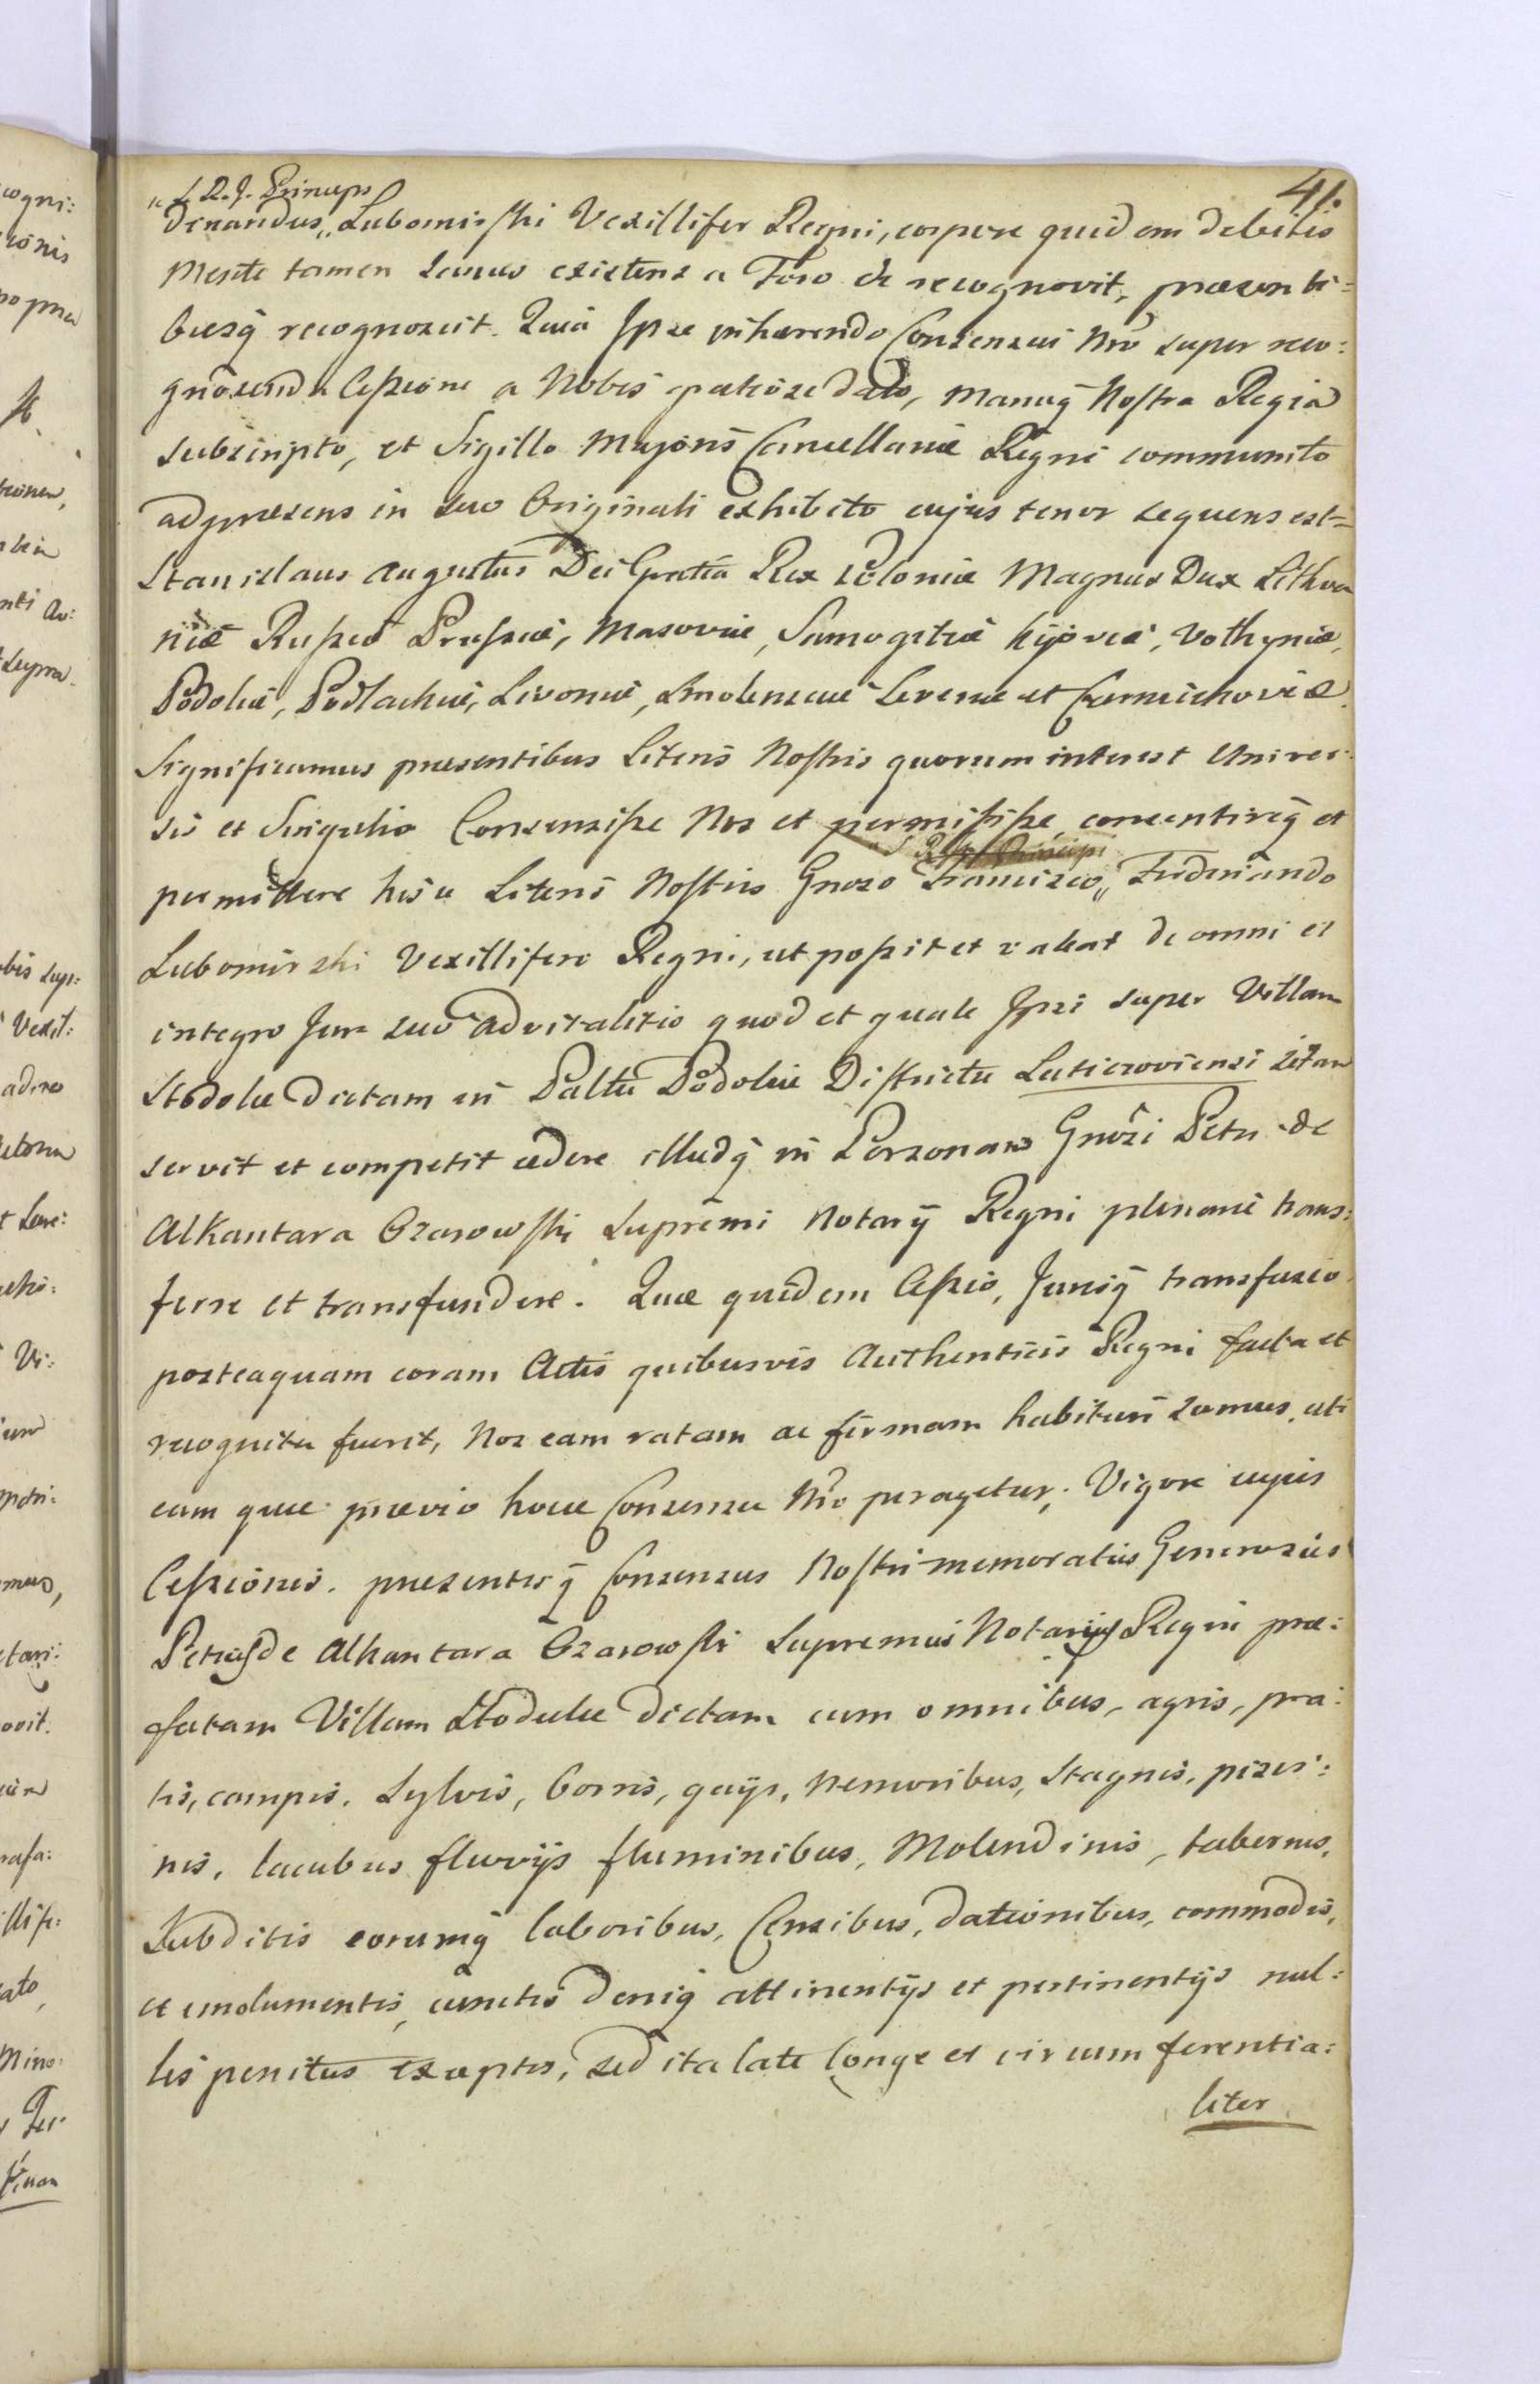 41.
„S. R. J. Princeps
dinandus„ Lubomirski Vexillifer Regni, corpore quidem debilis
Mente tamen sanus existens a Foro &c recognovit, præsenti=
busq̃ recognoscit. Quia Ipse inhærendo Consensui Nrõ super reco:
gnoscenda Cessione a Nobis gratiose dato, Manuq̃ Nostra Regia
subscripto, et Sigillo Majoris Cancellariæ Regni communito
adpræsens in suo Originali exhibito cujus tenor sequens est=
Stanislaus Augustus Dei Gratia Rex Poloniæ Magnus Dux Lithva
niæ Russiæ Prussiæ, Masoviæ, Samogitiæ Kijoviæ, Volhyniæ,
Podoliæ, Podlachiæ, Livoniæ, Smolensciæ Severiæ et Czerniechoviæ.
Significamus præsentibus Literis Nostris quorum interest Univer:
sis et Singulis Consensisse Nos et permisisse, consentireq̃ et
S. R. J. Principi
permittere hisce Literis Nostris Gnoso Francisco„ Ferdinando
Lubomirski Vexillifero Regni, ut possit et valeat de omni et
integro Jure suo advitalitio quod et quale Ipsi super Villam
Stodolce dictam in Palttu Podoliæ Districtu Laticzoviensi sitam
servit et competit cedere illudq̃ in Personam Gnosi Petri de
Alkantara Ozarowski Supremi Notarij Regni plenarie trans:
ferre et transfundere. Quæ quidem Cessio, Jurisq̃ transfusio
posteaquam coram Actis quibusvis Authenticis Regni facta et
recognita fuerit, Nos eam ratam ac firmam habituri sumus, uti
eam quæ prævio hocce Consensu Nrõ peragetur; Vigore cujus
Cessionis, præsentisq̃ Consensus Nostri memoratus Generosus
Petrus de Alkantara Ozarowski Supremus Notarius Regni præ:
fatam Villam Stodulce dictam cum omnibus, agris, pra:
tis, campis, Sylvis, borris, gays, Nemoribus, Stagnis, pisci:
nis, lacubus fluvijs fluminibus, Molendinis, tabernis,
Subditis eorumq̃ laboribus, Censibus, dationibus, commodis,
et emolumentis, cunctis deniq̃ attinentijs et pertinentijs nul:
lis penitus exceptis, sed ita late longe et circumferentia:
liter